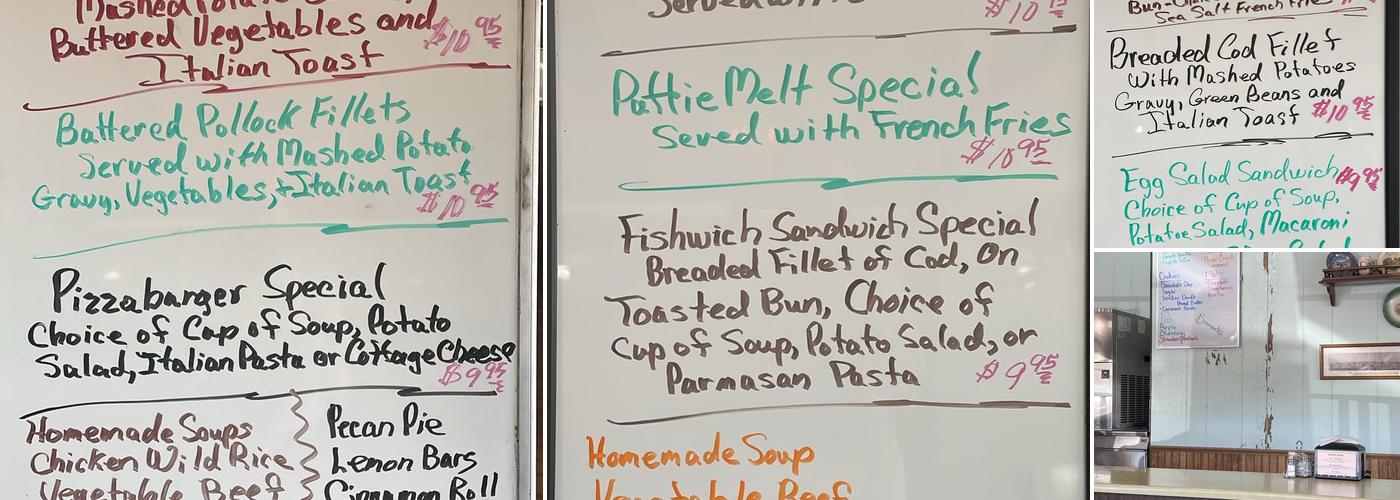 Mashed
Buttered Vegetables and
Italian Toast
$10 95
Battered Pollock Fillets
Served with Mashed Potato
Gravy, Vegetables, + Italian Toast
$10 95
Pizzabarger Special
Choice of Cup of Soup, Potato
Salad, Italian Pasta or Cottage Cheese
$9 95
Homemade Soups
Chicken Wild Rice
Vegetable Beef
Pecan Pie
Lemon Bars
Cinnamon Roll
Served with
$10 95
Pattie Melt Special
Seved with French Fries
$10 95
Fishwich Sandwich Special
Breaded Fillet of Cod, On
Toasted Bun, Choice of
Cup of Soup, Potato Salad, or
Parmasan Pasta
$9 95
Homemade Soup
Vegetable Beef
Sea Salt French Fries
Breaded Cod Fillet
With Mashed Potatoes
Gravy, Green Beans and
Italian Toast $10 95
Egg Salad Sandwich $9 95
Choice of Cup of Soup,
Potatoe Salad, Macaroni
Cookies
Chocolate Chip
Sugar
Peanut Butter
Malts
Chocolate
Strawberry
Vanilla
Apple